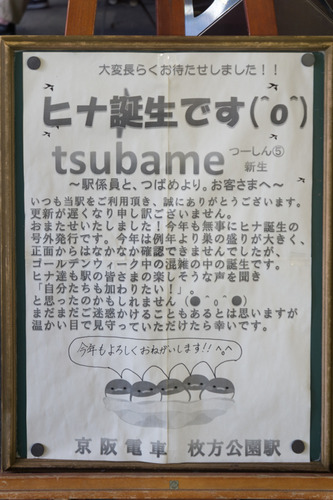 大変長らくお待たせしました！！
ヒナ誕生です(^o^)
tsubame つーしん⑤
新生
～駅係員と、つばめより。お客さまへ～
いつも当駅をご利用頂き、誠にありがとうございます。
更新が遅くなり申し訳ございません。
おまたせいたしました！今年も無事にヒナ誕生の
号外発行です。今年は例年より巣の盛りが大きく、
正面からはなかなか確認できませんでしたが、
ゴールデンウィーク中の混雑の中の誕生です。
ヒナ達も駅の皆さまの楽しそうな声を聞き
「自分たちも加わりたい！」。
と思ったのかもしれません（●^o^●）
まだまだご迷惑かけることもあるとは思いますが
温かい目で見守っていただけたら幸いです。
今年もよろしくおねがいします!! ^o^
京阪電車 枚方公園駅